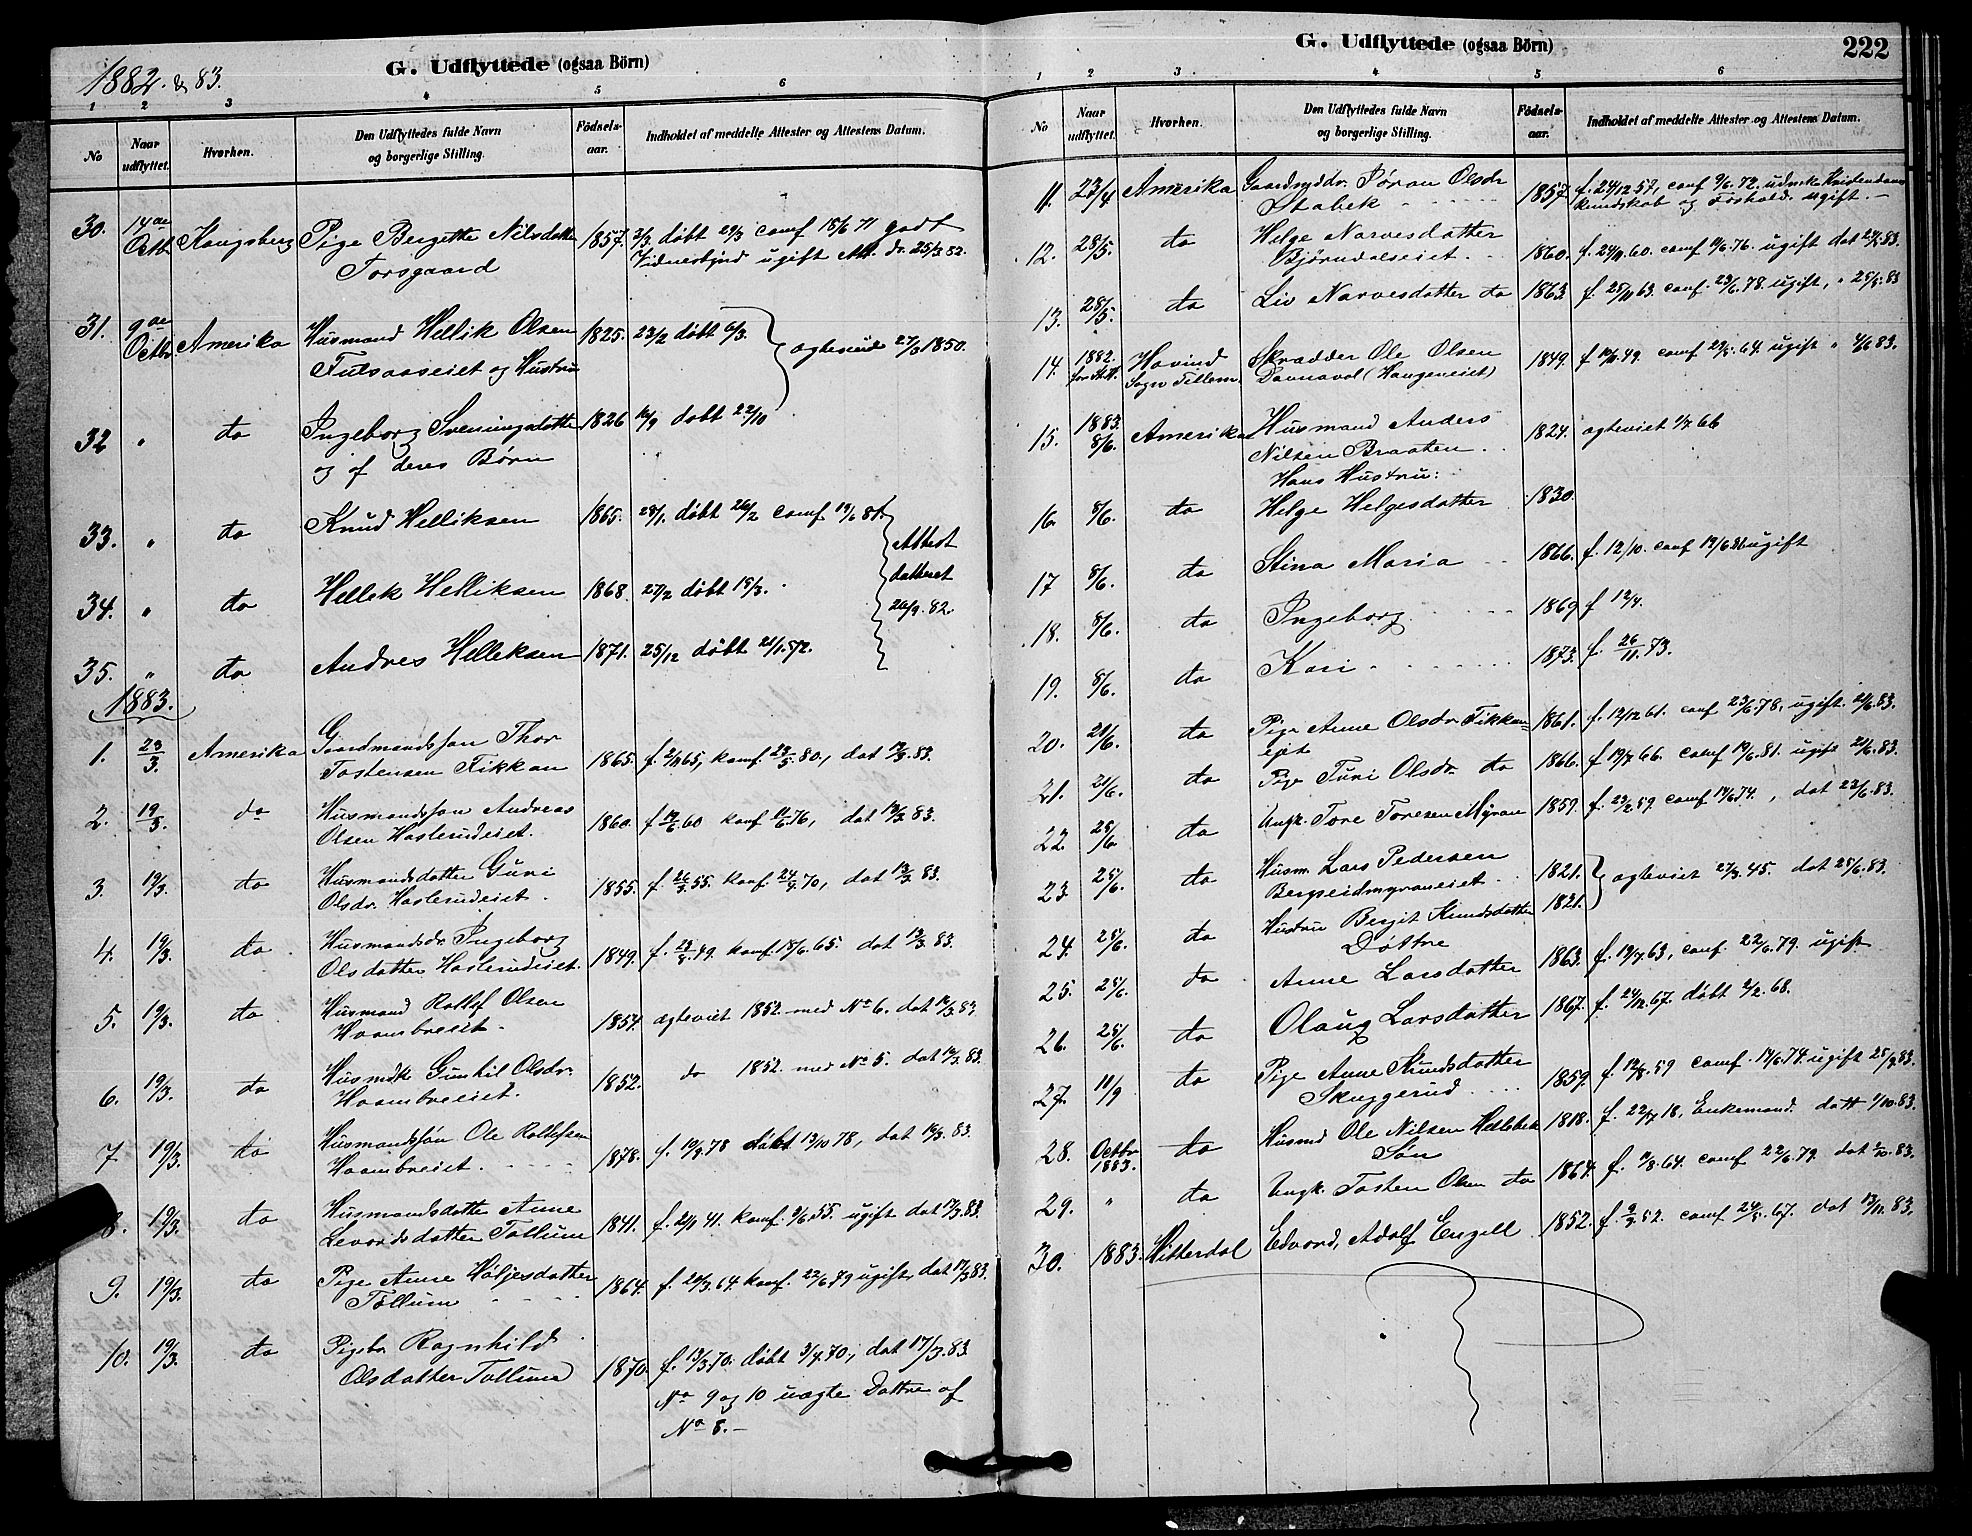 1882 & 83.
G. Udflyttede (ogsaa Börn)
1 2 3 4 5 6
No Naar udflyttet. Hvorhen. Den Udflyttedes fulde Navn og borgerlige Stilling. Födsels-aar. Indholdet af meddelte Attester og Attestens Datum.
30. 14de Octbr Kongsberg Pige Bergette Nilsdatter 1857. 2/3 döbt 29/3 conf 18/6 71 godt
Torsgaard Vidnesbyrd ugift Att. dr. 25/3 82.
31. 9de Octbr Amerika Husmand Hellik Olsen 1825. 23/2 döbt 6/3. agteviede 27/3 1850.
Fulsaaseiet og Hustru
32 " do Ingeborg Sveinungsdatter 1826 16/9 döbt 22/10
og af deres Børn
33. " do Knud Helliksen 1865. 28/1. döbt 26/2 conf 19/6 81. Attest
34. " do Hellek Helliksen 1868. 27/2 döbt 15/3. datteret
26/9. 82.
35. " do Andres Helleksen 1871. 25/12 döbt 21/1. 72.
1883.
1. 23/3. Amerika Gaardmandssøn Thor
Tostensen Fikkan 1865. f. 2/11 65, konf. 23/5. 80., dat 12/3. 83.
2. 19/3. do Husmandssøn Andreas
Olsen Haslerudeiet. 1860. f 14/6. 60 konf. 11/6. 76, dat 12/3 83.
3. 19/3. do Husmandsdatter Guri
Olsdr. Haslerudeiet. 1855. f. 26/3. 55. konf. 24/9. 70, dat 12/3. 83.
4. 19/3. do Husmandsdr. Ingeborg
Olsdatter Haslerudeiet. 1849. f. 23/8. 49. konf. 18/6. 65. dat 12/3. 83.
5. 19/3. do Husmand Rollef Olsen
Haambreiet. 1854. ægteviet 1882. med No 6. dat 16/3. 83
6. 19/3. do Husmdk Gunhil Olsdr.
Haambreiet. 1852. do 1882. med No 5. dat 16/3. 83.
7 19/3. do Husmandssøn Ole Rollefsen
Haambreiet. 1878. f. 19/9. 78 döbt 13/10 78, dat 16/3. 83.
8. 19/3. do Husmandsdatter Anne
Levordsdatter Tollum 1841. f. 2/1 41. konf. 3/6. 55. ugift dat 17/3. 83.
9. 19/3. do Pige Anne Høljesdatter
Tollum 1864. f. 20/3. 64. konf. 22/6. 79 ugift, dat 17/3 83.
10. 19/3. do Pigebr Ragnhild
Olsdatter Tollum 1870. f. 13/3. 70. döbt 3/4. 70., dat 17/3. 83
No 9 og 10 uægte Døttre af
No 8.-
G. Udflyttede (ogsaa Börn) 222
1 2 3 4 5 6
No Naar udflyttet. Hvorhen. Den Udflyttedes fulde Navn og borgerlige Stilling. Födsels-aar. Indholdet af meddelte Attester og Attestens Datum.
11. 23/4 Amerika Gaardmddr. Søran Olsdr
Stabek 1857. f. 24/12 57, conf 9/6. 72. Kristendoms
kundskab og Forhold. ugift.
12. 28/5. do Helge Narvesdatter
Bjørndalseiet. 1860. f. 24/11. 60. conf 11/6. 76. ugift dat 22/5. 83.
13. 28/5. do Liv Narvesdatter do 1863 f. 25/11 63. conf 23/6. 78. ugift, " 25/5. 83
14. 1882. Hovind Skrædder Ole Olsen
Sogn Tellem. (Haugeneiet) 1849. f 10/11. 49. conf 29/5. 64. ugift " 4/6 83.
15. 1883. 8/6. Amerika Husmand Anders
Nilsen Braaten. 1824. agteviet 66
Hans Hustru:
16. 8/6. do Helge Helgesdatter 1830.
17 8/6. do Stina Maria 1866. f. 12/10. conf 19/6 81 ugift
18. 8/6. do Ingeborg. 1869 f 12/4.
19. 8/6. do Kari 1873. f. 26/11. 73.
20. 21/6. do Pige Anne Olsdr. Fikkan
eget 1861. f. 12/12 61. conf 23/6. 78. ugift. 21/6. 83.
21. 21/6. do Pige Turi Olsdr. do 1866. f 19/7 66. conf 19/6. 81. ugift 21/6. 83.
22. 25/6. do Ungk. Tore Toresen Myran 1859. f. 23/2. 59 conf 14/6 74. , dat 22/6. 83.
23. 25/6. do Husm. Lars Pedersen
Bergseidmyraneiet. 1821. agteviet 27/9. 45. dat 25/6. 83.
24. 25/6. do Hustru Bergit Knudsdatter 1821.
Døttre
25. 25/6. do Anne Larsdatter 1863. f. 19/7. 63, conf. 22/6. 79. ugift
26. 25/6. do Olaug Larsdatter 1867. f. 24/12. 67. döbt 2/2. 68.
27. 11/9 do Pige Anne Knudsdatter
Skuggerud 1859. f. 12/8. 59 conf. 14/6. 74. ugift 25/9. 83.
28. Octbr 1883. do Husmd Ole Nilsen Hellebek 1818. f. 22/4 18, Enkemand. datt 1/10. 83.
Søn
29. " do Ungk. Tosten Olsen do 1864. f. 11/8. 64. conf 22/6. 79. dat 2/10. 83.
30. 1883. Hitterdal Edvard, Adolf Engell 1852. f. 9/2. 52. conf 26/5. 67. dat 13/11. 83.